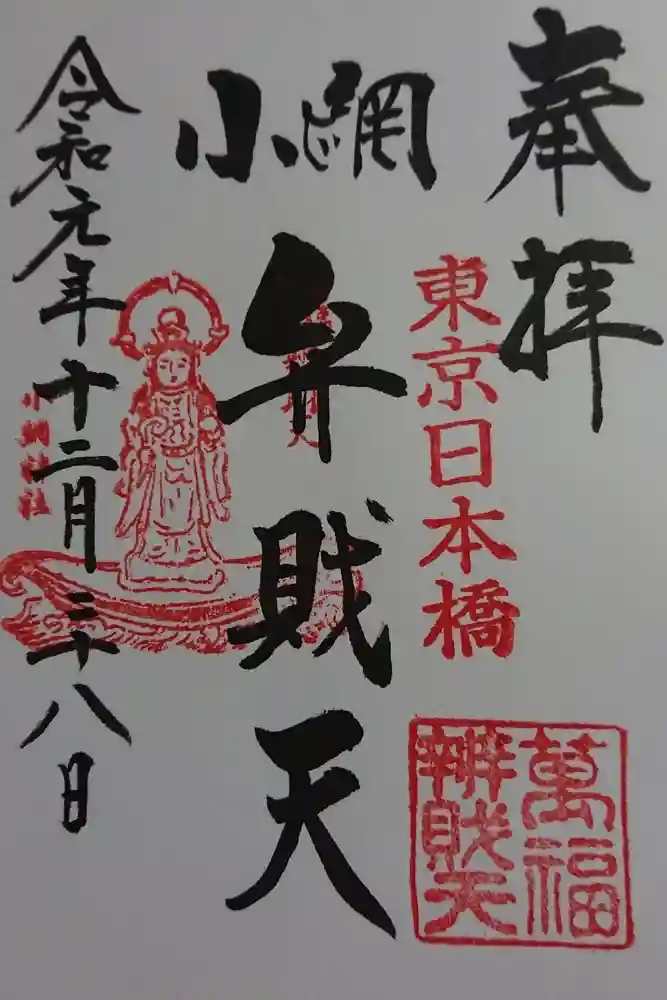 奉拝
東京日本橋
萬福
辨財天
小網
弁財天
小網神社
令和元年十二月二十八日